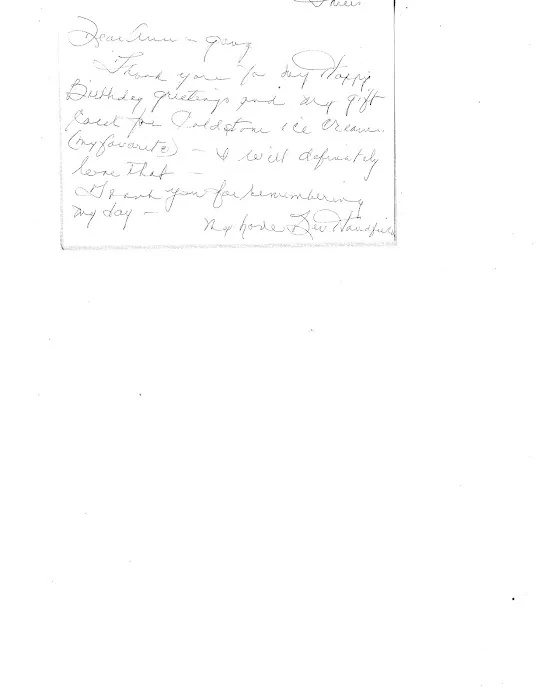 Dear Ann – gang
Thank you for my Happy
Birthday greetings and my gift
Card for Coldstone ice cream
(my favorite) – I will definately
love that –
Thank you for remembering
my day –
My love Bev